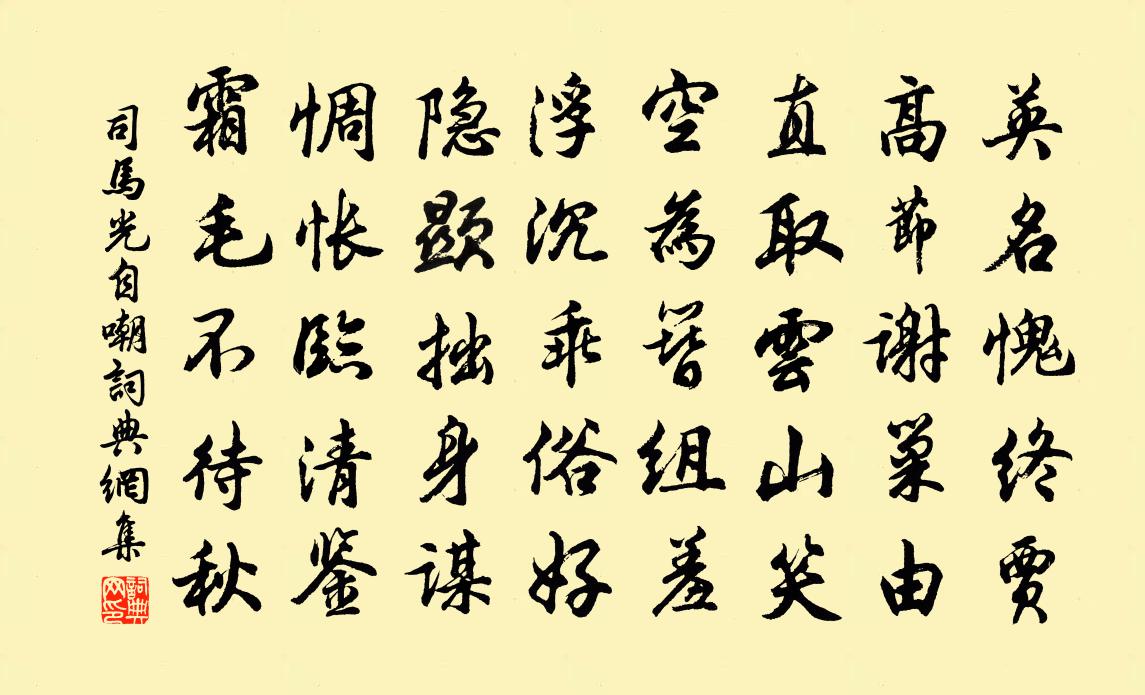 英名愧终贾
高節谢巢由
直取雲山笑
空為簪组羞
浮沉乖俗好
隐顯拙身谋
惆怅臨清鉴
霜毛不待秋
司馬光自嘲詞典網集
詞典網印